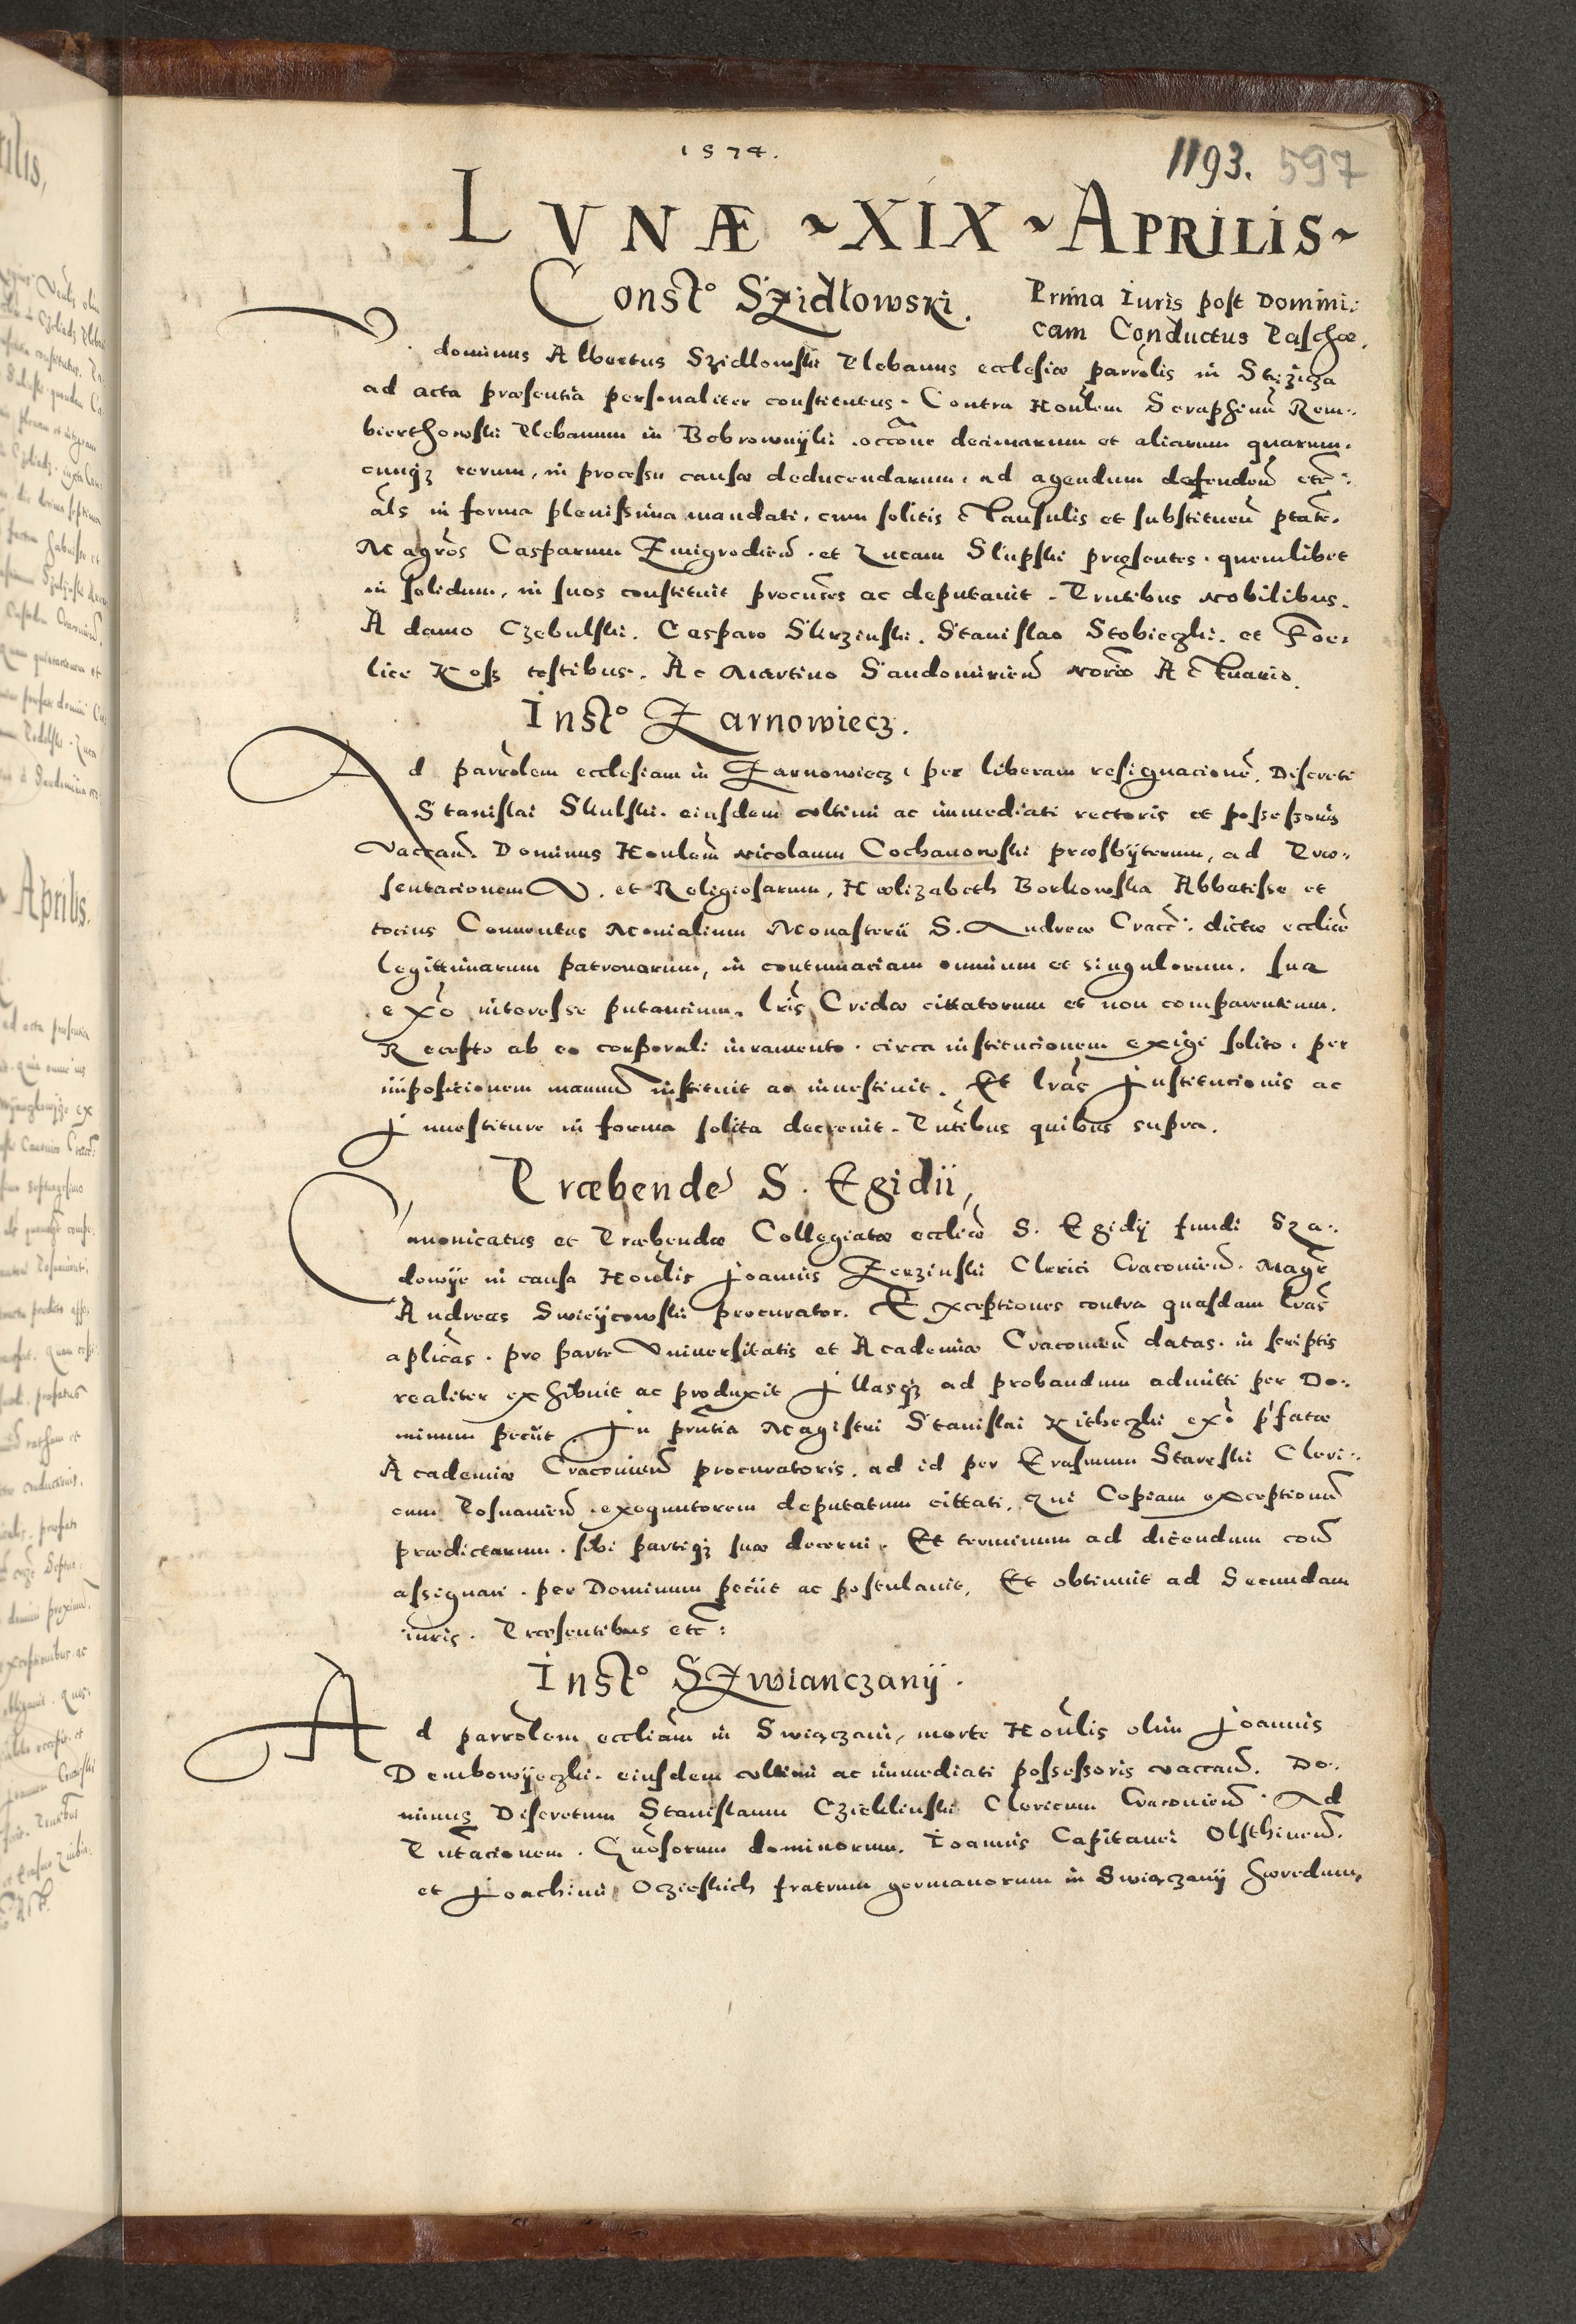 1574.
1193. 597
LVNÆ ~ XIX ~ APRILIS ~
Consto Szidlowski.
Prima Iuris post Domini:
cam Conductus Paschæ.
V. dominus Albertus Szidlowski Plebanus ecclesiæ parrolis in Strzizza
ad acta præsentia personaliter constitutus. Contra Honlem Seraphinū Rem-
bierthowski Plebanum in Bobrownyki occone decimarum et aliarum quarum-
cunqz rerum, in processu causæ deducendarum, ad agendum defendeñ etc:
als in forma plenissima mandati, cum solitis clausulis et substitueñ ptate.
Magros Casparum Zmigrodieñ. et Lucam Slupski præsentes. quemlibet
in solidum, in suos constituit procures ac deputauit. Pntibus Nobilibus.
Adamo Czebulski. Casparo Skrzinski. Stanislao Stobieczki. et Foe-
lice Kosz testibus. Ac Martino Sandomirieñ Norio Actuario.
Insto Zarnowiecz.
Ad parrolem ecclesiam in Zarnowiecz, per liberam resignacionē. Discreti
Stanislai Skulski. eiusdem vltimi ac immediati rectoris et possessoris
vaccañ. Dominus Honlem Nicolaum Cochanowski præsbyterum, ad Præ-
sentacionem V. et Religiosarum, Hælizabeth Borkowska Abbatisse et
tocius Conuentus Monialium Monasterii S. Andreæ Cracc: dictæ eccliæ
legittimarum patronarum, in contumaciam omnium et singulorum. sua
exo interesse putancium. lris Cridæ cittatorum et non comparentium.
Recepto ab eo corporali iuramento. circa institucionem exigi solito. per
impositionem manuū instituit ac inuestiuit. Et lras Institucionis ac
Inuestiture in forma solita decreuit. Pntibus quibus supra.
Præbende S. Egidii,
Canonicatus et Præbendæ Collegiatæ eccliæ S. Egidij fundi Sza-
dowye in causa Honlis Joannis Zerzinski Clerici Cracouieñ. Magr
Andreas Swieycowski procurator. Exceptiones contra quasdam lras
aplicas. pro parte Vniuersitatis et Academiæ Cracouieñ datas. in scriptis
realiter exhibuit ac produxit Illasqz ad probandum admitti per Do-
minum peciit. In pntia Magistri Stanislai Kitheczki exo pfatæ
Academiæ Cracouieñ procuratoris. ad id per Erasmum Stareski Cleri-
cum Posnanieñ. exequutorem deputatum cittati. Qui Copiam exceptionū
prædictarum. sibi partiqz suæ decerni. Et terminum ad dicendum coñ
assignari. per Dominum peciit ac postulauit. Et obtinuit ad Secundam
iuris. Præsentibus etc:
Insto Szwianczanij.
Ad parrolem eccliam in Swiączani, morte Honlis olim Joannis
Dembowyeczki. eiusdem vltimi ac immediati possessoris vaccañ. Do-
minus Discretum Stanislaum Czieklinski Clericum Cracouieñ. Ad
Pntacionem. Gnosorum dominorum. Ioannis Capitanei Olsthineñ.
et Joachimi Oczieskich fratrum germanorum in Swiączanij hæredum,